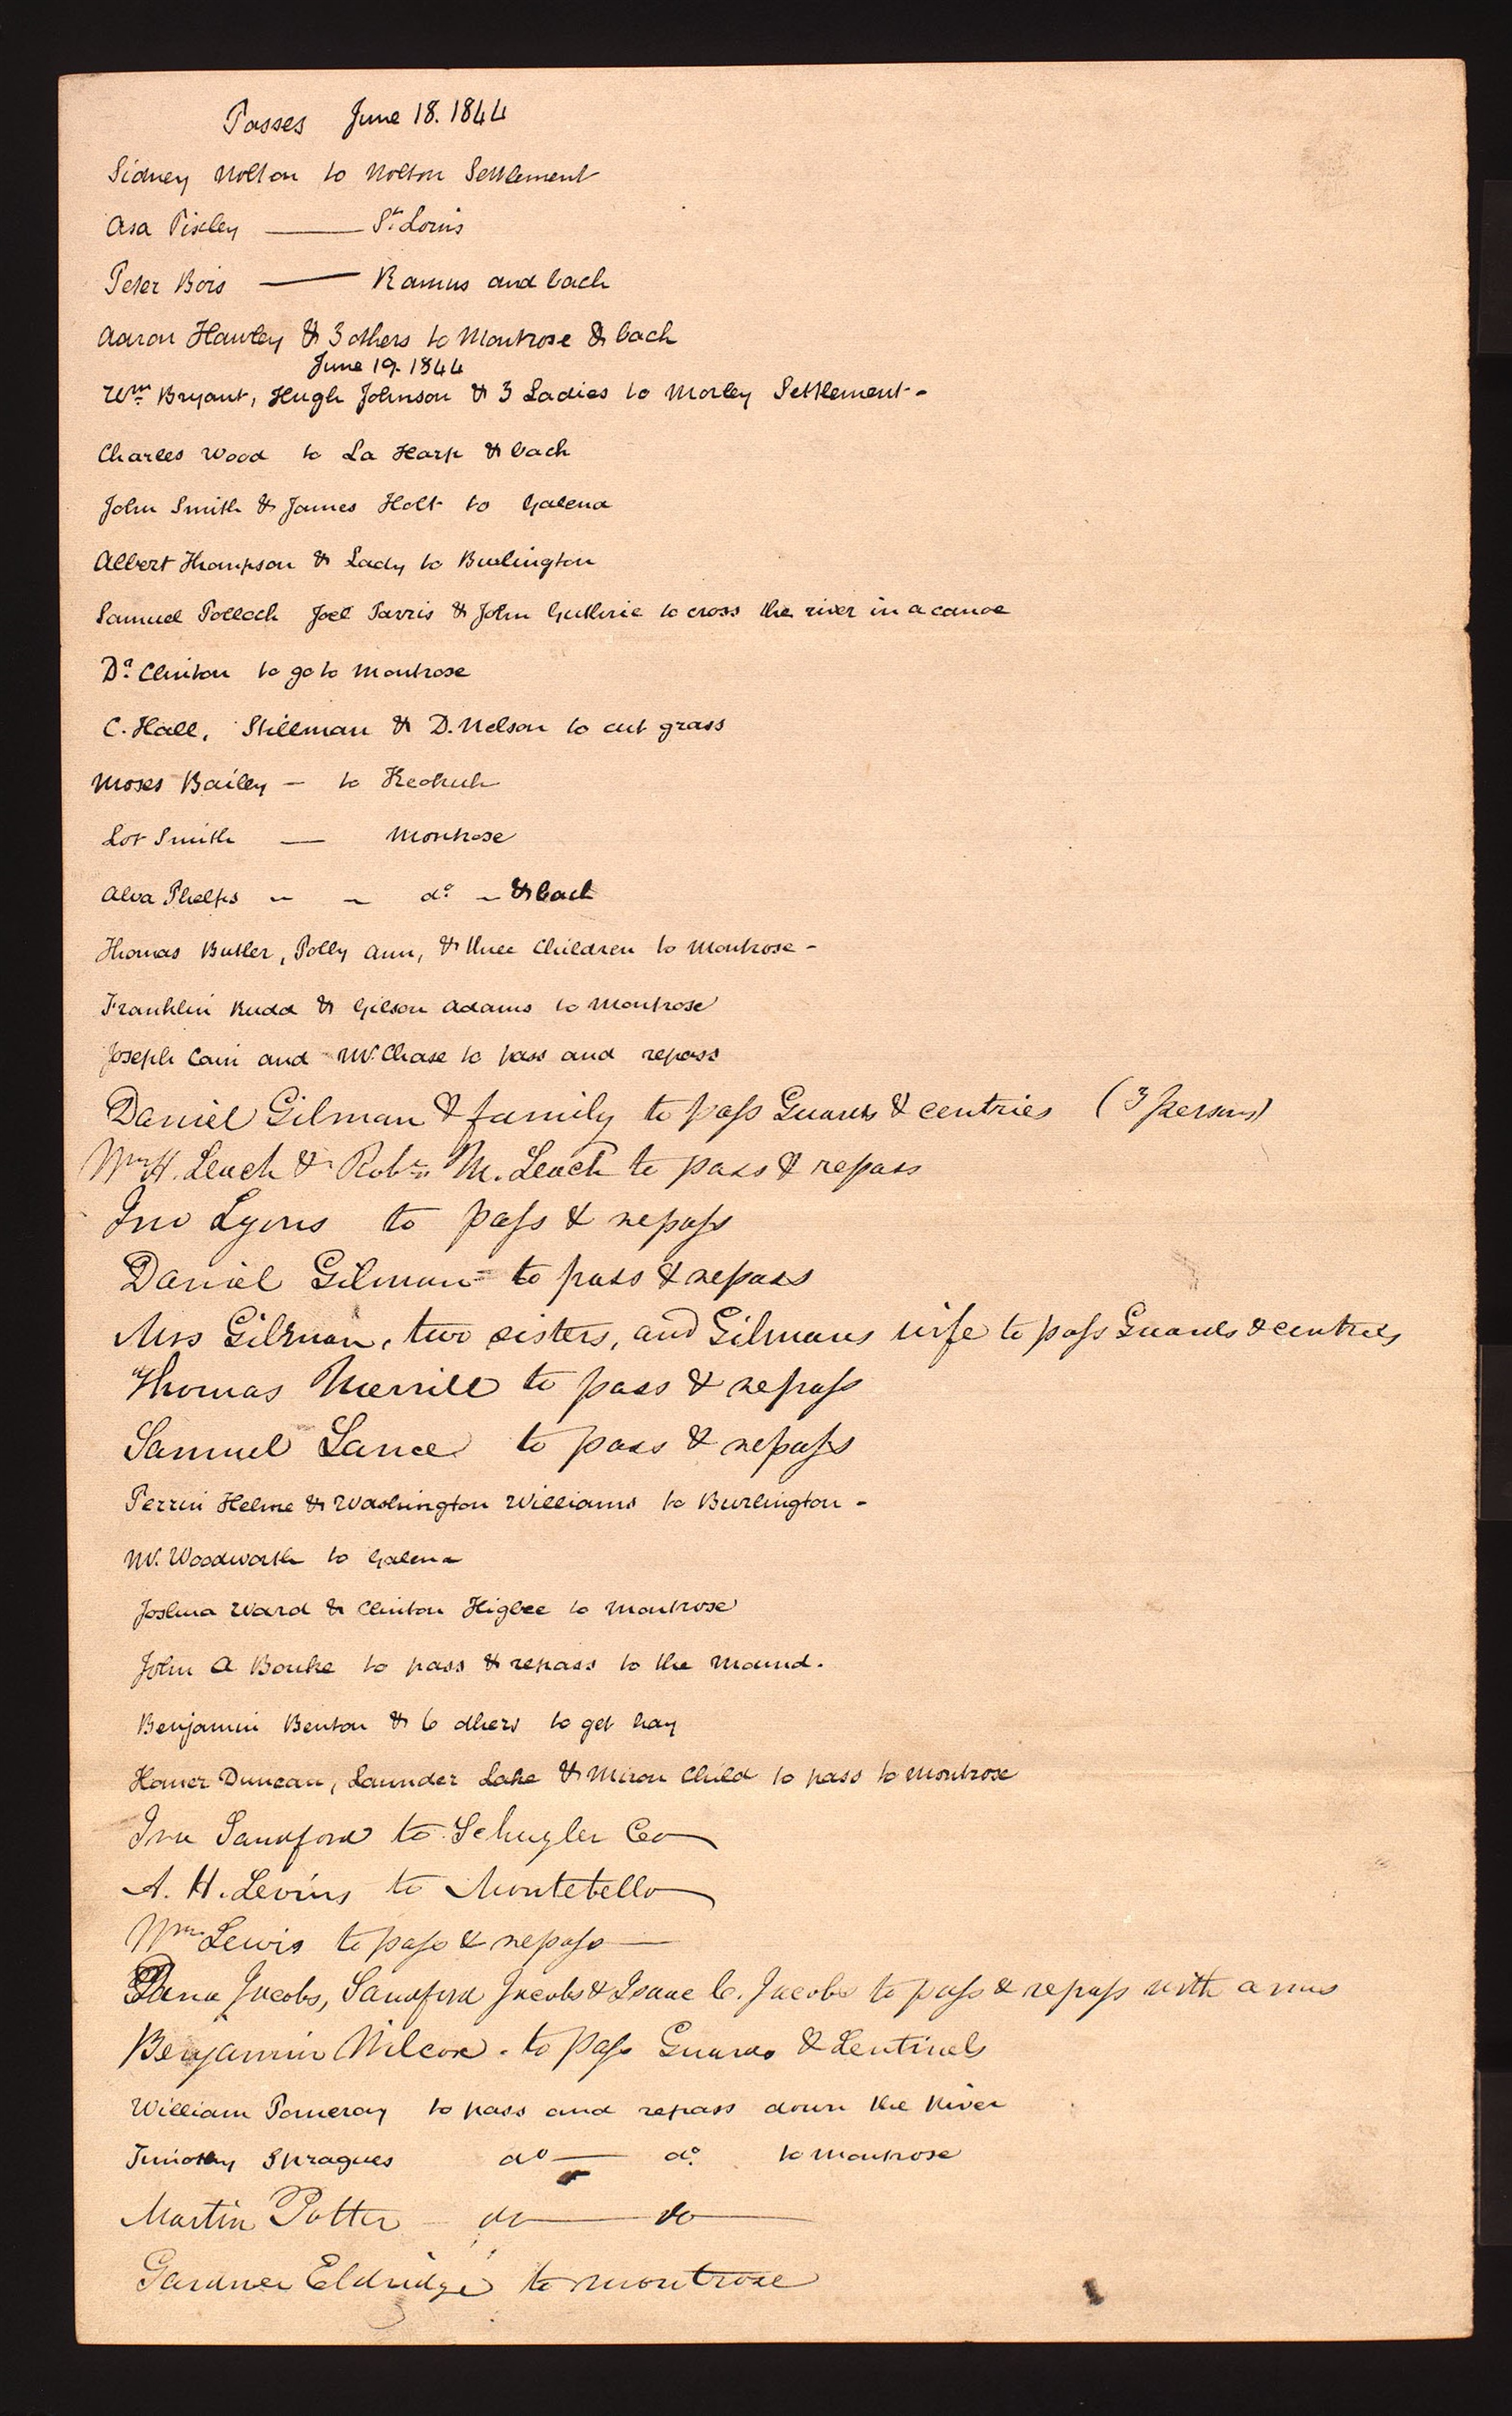 Passes June 18. 1844
Sidney Nolton to Nolton Settlement
Asa Pixley —— St. Louis
Peter Bois —— Ramus and back
Aaron Hawley & 3 others to Montrose & back
June 19. 1844
Wm. Bryant, Hugh Johnson & 3 Ladies to Morley Settlement -
Charles Wood to La Harp & back
John Smith & James Holt to Galena
Albert Thompson & Lady to Burlington
Samuel Pollock Joel Parris & John Guthrie to cross the river in a canoe
Dr. Clinton to go to Montrose
C. Hall, Stillman & D. Nelson to cut grass
Moses Bailey — to Keokuk
Lot Smith — Montrose
Alva Phelps - - do - & back
Thomas Butler, Polly Ann, & three Children to Montrose -
Franklin Rudd & Gilson Adams to Montrose
Joseph Cain and Mr. Chase to pass and repass
Daniel Gilman & family to pass Guards & centries (3 persons)
Wm. H. Leach & Robt. M. Leach to pass & repass
Jno Lyons to pass & repass
Daniel Gilman to pass & repass
Mrs Gilman, two sisters, and Gilmans wife to pass Guards & centries
Thomas Merrill to pass & repass
Samuel Lance to pass & repass
Perrin Helme & Washington Williams to Burlington -
Mr. Woodworth to Galena
Joshua Ward & Clinton Higbee to Montrose
John A Bouke to pass & repass to the Mound.
Benjamin Benton & 6 others to get hay
Homer Duncan, Launder Lake & Miron Child to pass to Montrose
Ira Sandford to Schuyler Co
A. H. Levins to Montebello
Wm Lewis to pass & repass —
Dana Jacobs, Sandford Jacobs & Isaac C. Jacobs to pass & repass with arms
Benjamin Wilcox. to pass Guards & Sentinels
William Pomeroy to pass and repass down the River
Timothy Spragues do — do. to Montrose
Martin Potter do — do —
Gardner Eldridge to montrose